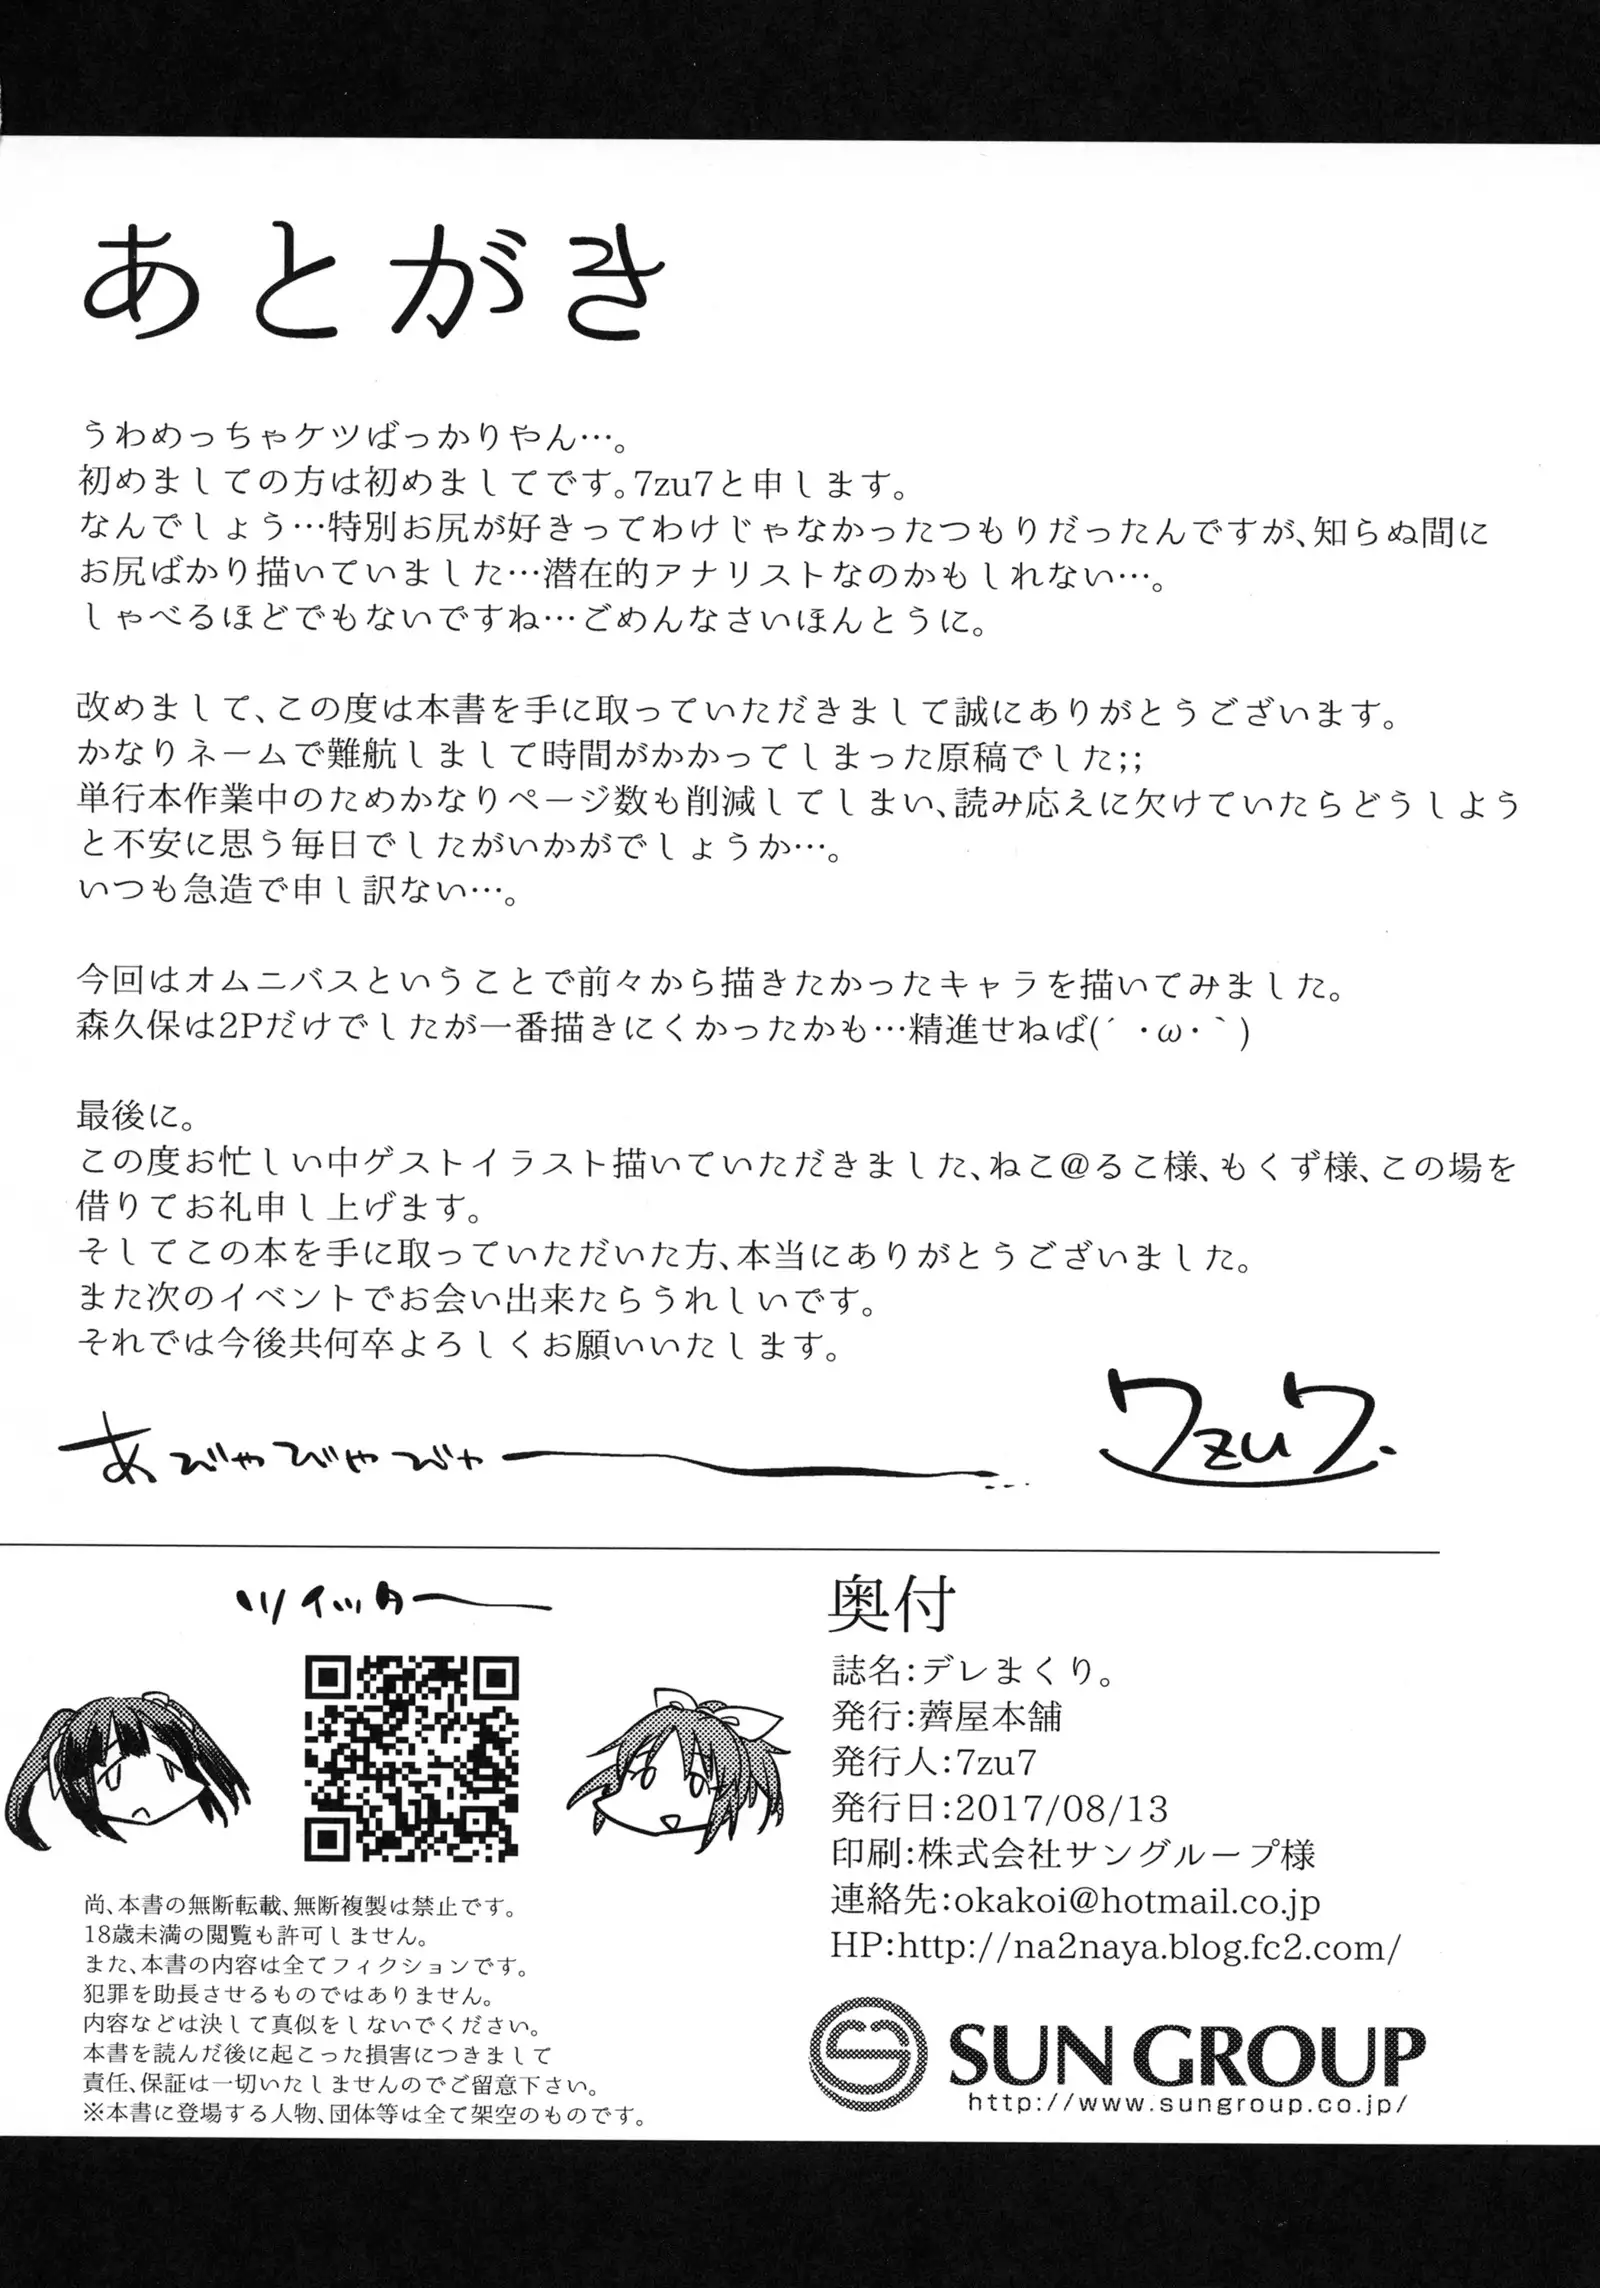 あとがき
うわめっちゃケツばっかりやん…。
初めましての方は初めましてです。7zu7と申します。
なんでしょう…特別お尻が好きってわけじゃなかったつもりだったんですが、知らぬ間に
お尻ばかり描いていました…潜在的アナリストなのかもしれない…。
しゃべるほどでもないですね…ごめんなさいほんとうに。
改めまして、この度は本書を手に取っていただきまして誠にありがとうございます。
かなりネームで難航しまして時間がかかってしまった原稿でした;;
単行本作業中のためかなりページ数も削減してしまい、読み応えに欠けていたらどうしよう
と不安に思う毎日でしたがいかがでしょうか…。
いつも急造で申し訳ない…。
今回はオムニバスということで前々から描きたかったキャラを描いてみました。
森久保は2Pだけでしたが一番描きにくかったかも…精進せねば(´・ω・｀)
最後に。
この度お忙しい中ゲストイラスト描いていただきました、ねこ@るこ様、もくず様、この場を
借りてお礼申し上げます。
そしてこの本を手に取っていただいた方、本当にありがとうございました。
また次のイベントでお会い出来たらうれしいです。
それでは今後共何卒よろしくお願いいたします。
あびゃびゃびゃー…
7zu7.
ツイッター
奥付
誌名:デレまくり。
発行:薺屋本舗
発行人:7zu7
発行日:2017/08/13
印刷:株式会社サングループ様
連絡先:okakoi@hotmail.co.jp
HP:http://na2naya.blog.fc2.com/
尚、本書の無断転載、無断複製は禁止です。
18歳未満の閲覧も許可しません。
また、本書の内容は全てフィクションです。
犯罪を助長させるものではありません。
内容などは決して真似をしないでください。
本書を読んだ後に起こった損害につきまして
責任、保証は一切いたしませんのでご留意下さい。
※本書に登場する人物、団体等は全て架空のものです。
SUN GROUP
http://www.sungroup.co.jp/